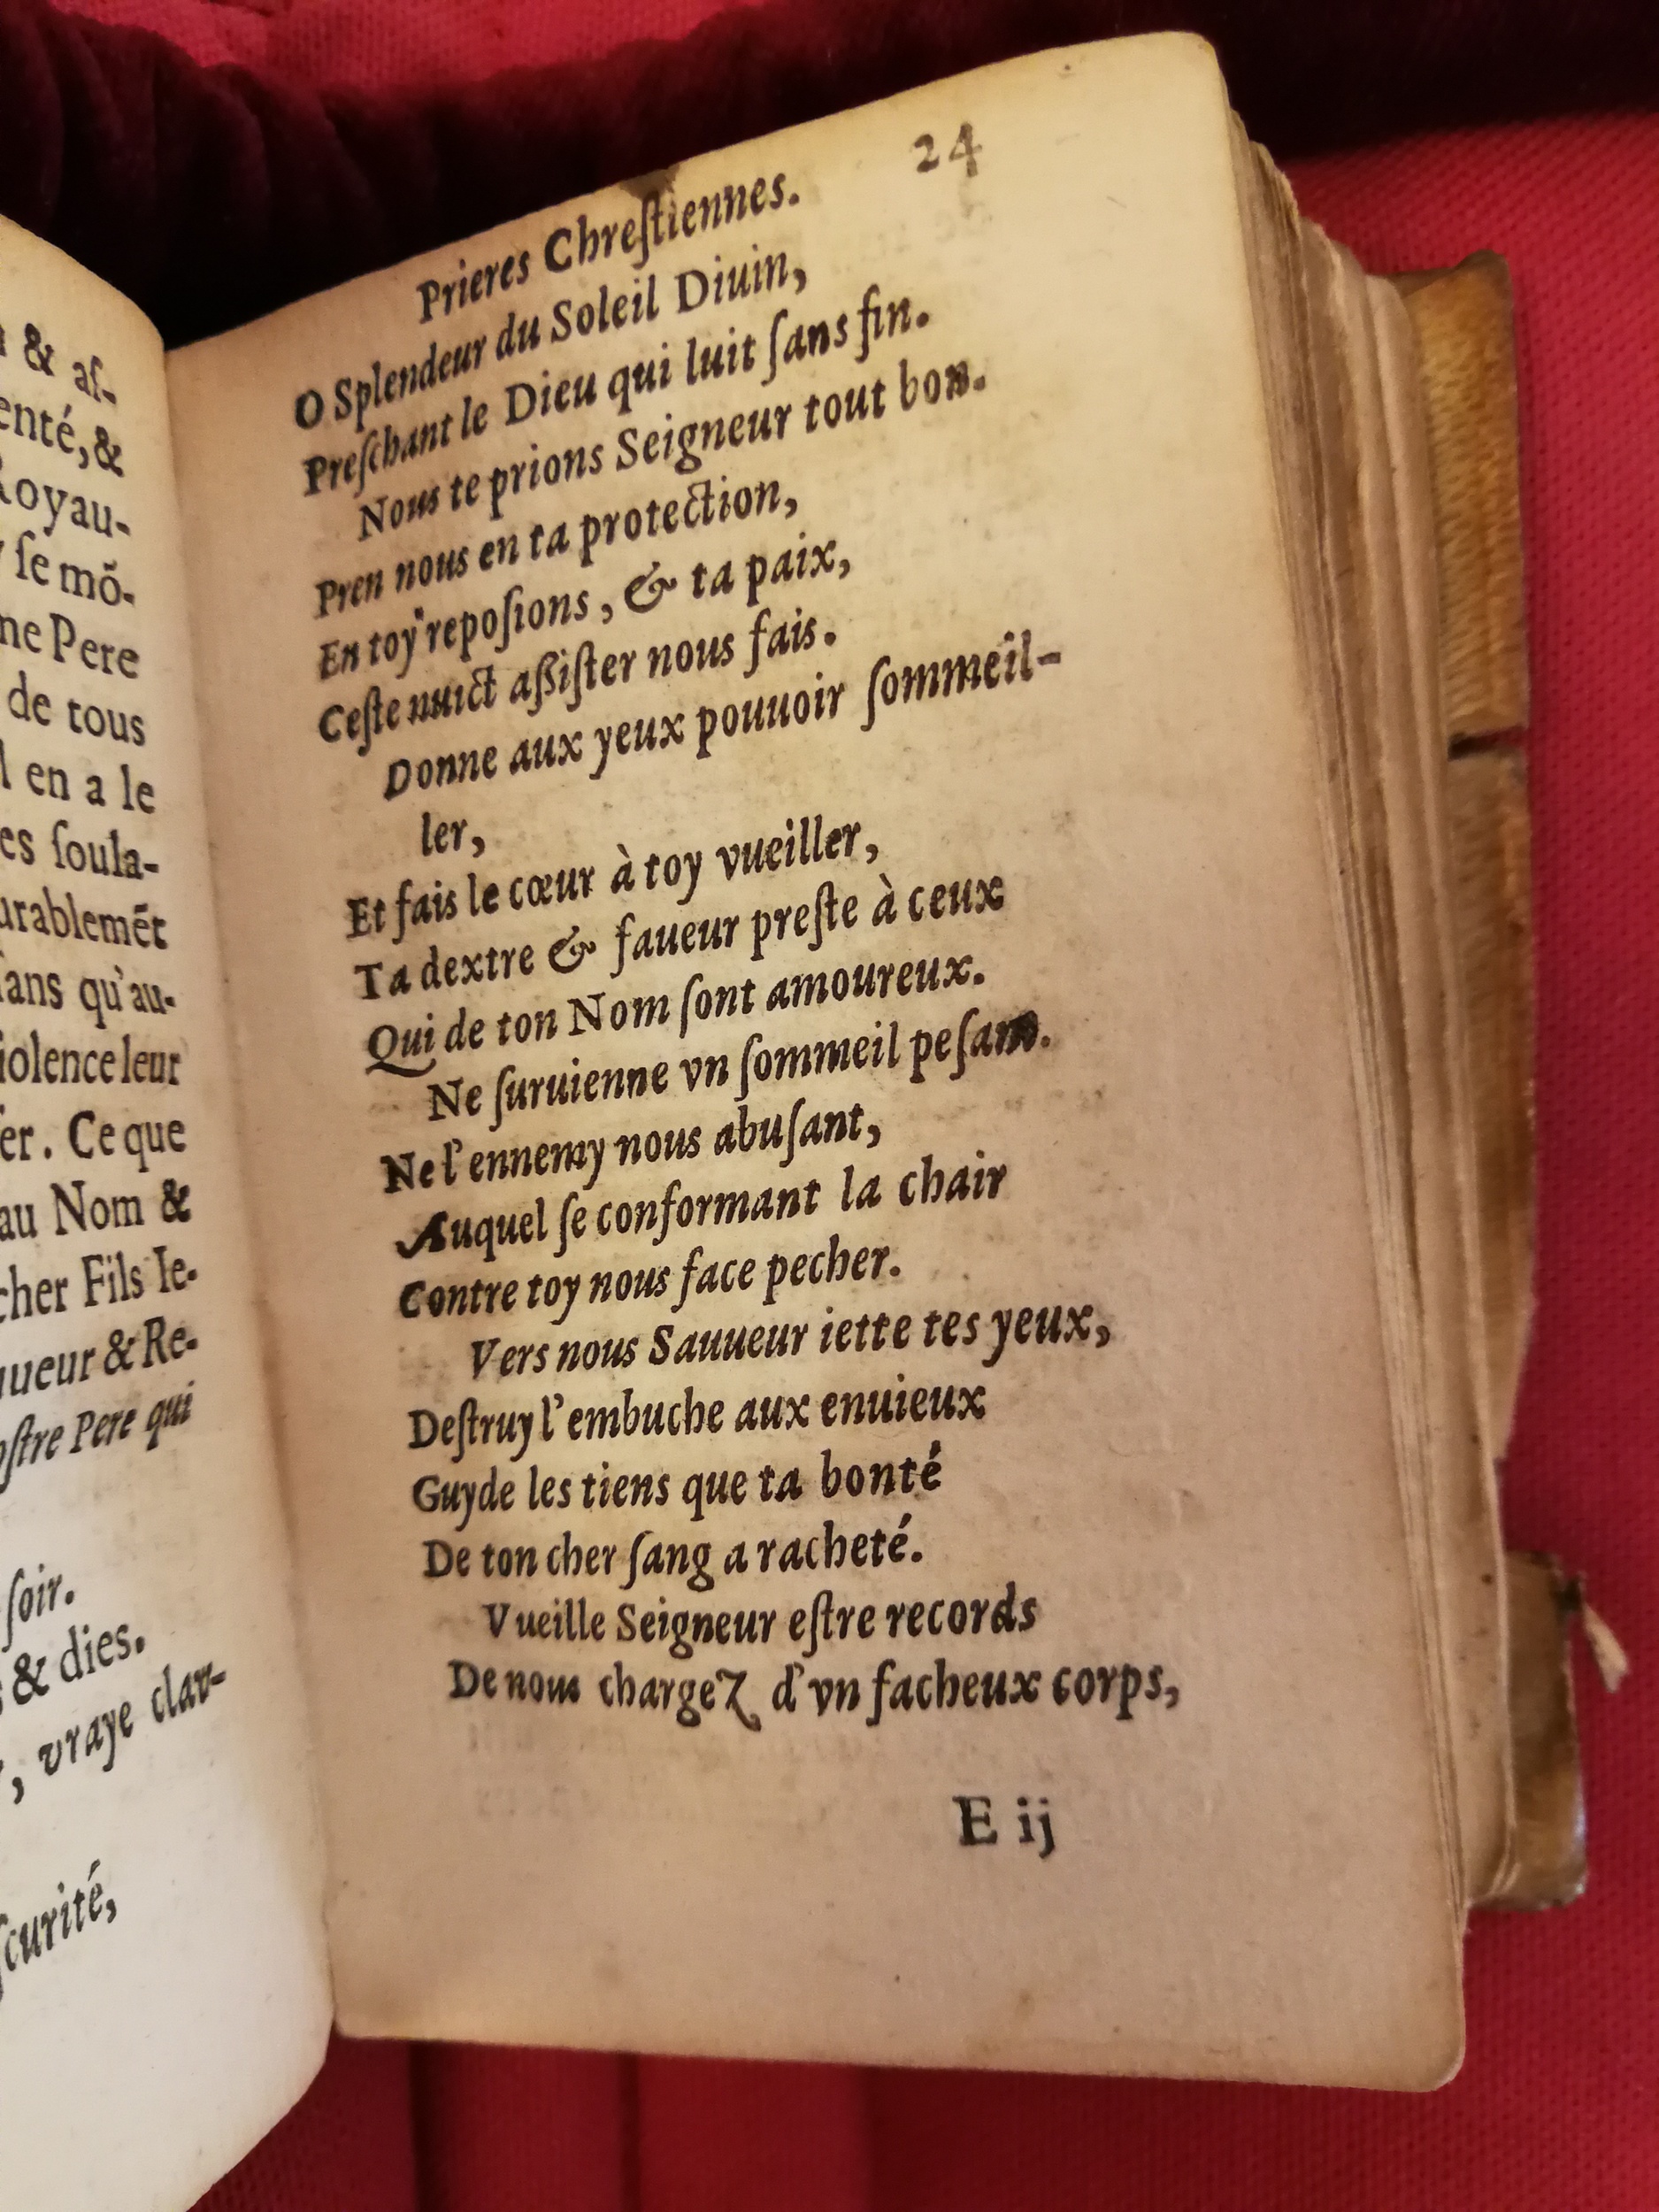 & aſ-
enté, &
Royau-
ſe mõ-
ne Pere
de tous
l en a le
es ſoula-
urablemẽt
ſans qu'au-
iolence leur
er. Ce que
au Nom &
cher Fils Ie-
ueur & Re-
oſtre Pere qui
ſoir.
& dies.
, vraye clar-
ſcurité,
Prieres Chreſtiennes. 24
O Splendeur du Soleil Diuin,
Preſchant le Dieu qui luit ſans fin.
Nous te prions Seigneur tout bon.
Pren nous en ta protection,
En toy repoſions, & ta paix,
Ceſte nuict aßiſter nous fais.
Donne aux yeux pouuoir ſommeil-
ler,
Et fais le cœur à toy vueiller,
Ta dextre & faueur preſte à ceux
Qui de ton Nom ſont amoureux.
Ne ſuruienne vn ſommeil
Ne l'ennemy nous abuſant,
Auquel ſe conformant la chair
Contre toy nous face pecher.
Vers nous Sauueur iette tes yeux,
Deſtruy l'embuche aux enuieux
Guyde les tiens que ta bonté
De ton cher ſang a racheté.
Vueille Seigneur eſtre records
De nous chargez d'vn facheux corps,
E ij